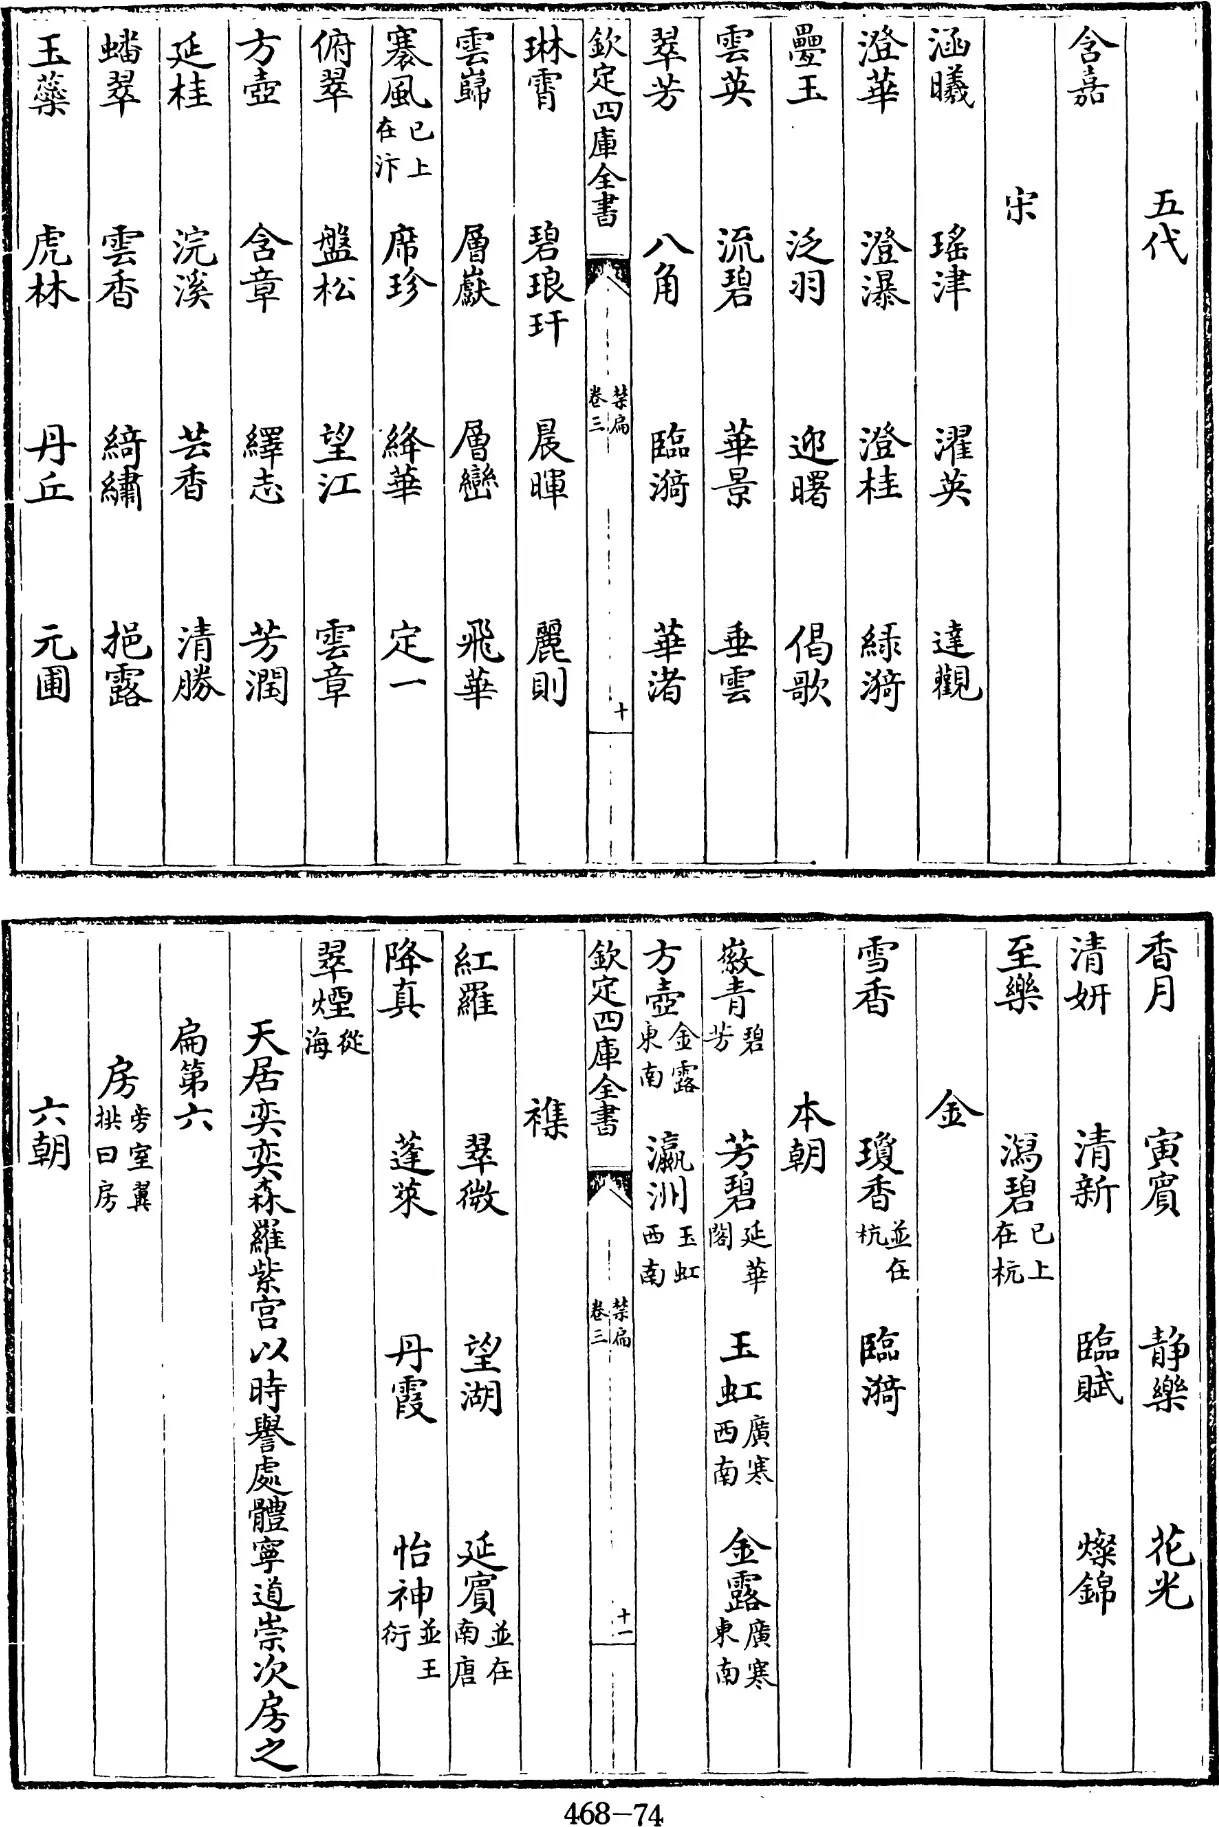 五代
含嘉
宋
涵曦 瑤津 濯英 達觀
澄華 澄瀑 澄桂 綠漪
疊玉 泛羽 迎曙 偈歌
雲英 流碧 華景 垂雲
翠芳 八角 臨漪 華渚
欽定四庫全書 禁扁 卷三 十
琳霄 碧琅玕 晨暉 麗則
雲巋 層巘 層巒 飛華
褰風已上在汴 席珍 絳華 定一
俯翠 盤松 望江 雲章
方壺 含章 繹志 芳潤
延桂 浣溪 芸香 清勝
蟠翠 雲香 綺繡 挹露
玉蘂 虎林 丹丘 元圃
香月 寅賓 静樂 花光
清妍 清新 臨賦 燦錦
至樂 瀉碧已上在杭
金
雪香 瓊香並在杭 臨漪
本朝
徽青碧芳 芳碧延華閣 玉虹廣寒西南 金露廣寒東南
方壺金露東南 瀛洲玉虹西南
欽定四庫全書 禁扁 卷三 十一
襍
紅羅 翠微 望湖 延賓並在南唐
降真 蓬萊 丹霞 怡神並王衍
翠煙從海
天居奕奕森羅紫宫以時譽處體寧道崇次房之
扁第六
房旁室翼拱曰房
六朝
468-74